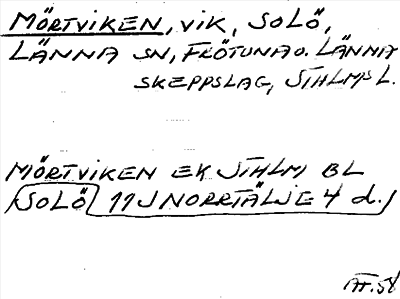 MÖRTVIKEN, VIK, SOLÖ,
LÄNNA SN, FRÖTUNA O. LÄNNA
SKEPPSLAG, STHLMS L.
MÖRTVIKEN EK STHLM BL
SOLÖ 11J NORRTÄLJE 4 d.
AF. 58